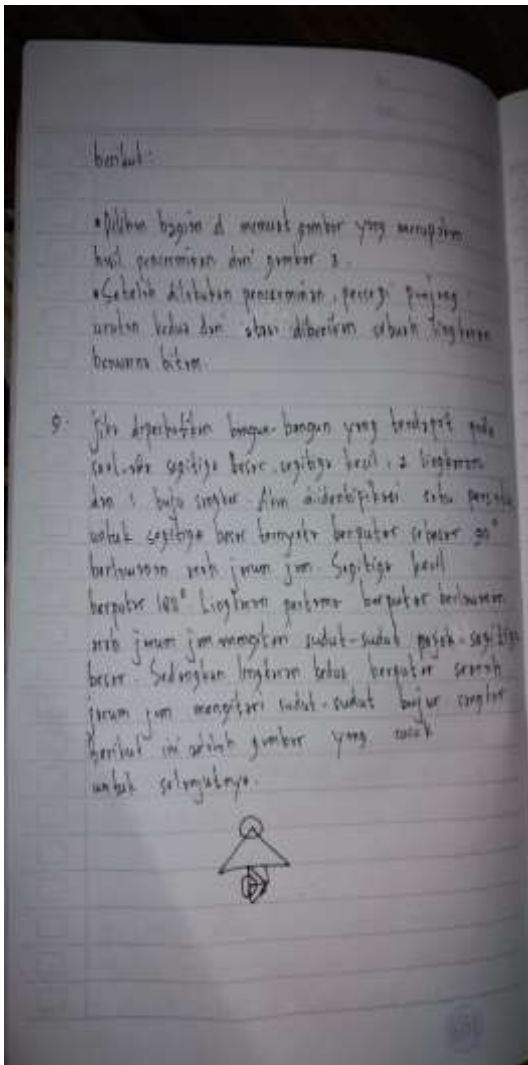 berikut:
• Pilihan bagian d memuat gambar yang merupakan
hasil pencerminan dari gambar 3.
• Setelah dilakukan pencerminan, persegi panjang
urutan kedua dari atas diberikan sebuah lingkaran
berwarna hitam.
9. jika diperhatikan bangun-bangun yang terdapat pada
soal ada segitiga besar, segitiga kecil, 2 lingkaran
dan 1 bujur sangkar. Akan diidentifikasi satu persatu
untuk segitiga besar ternyata berputar sebesar 90°
berlawanan arah jarum jam. Segitiga kecil
berputar 180°. Lingkaran pertama berputar berlawanan
arah jarum jam mengitari sudut-sudut pojok segitiga
besar. Sedangkan lingkaran kedua berputar searah
jarum jam mengitari sudut-sudut bujur sangkar
berikut ini adalah gambar yang cocok
untuk selanjutnya.